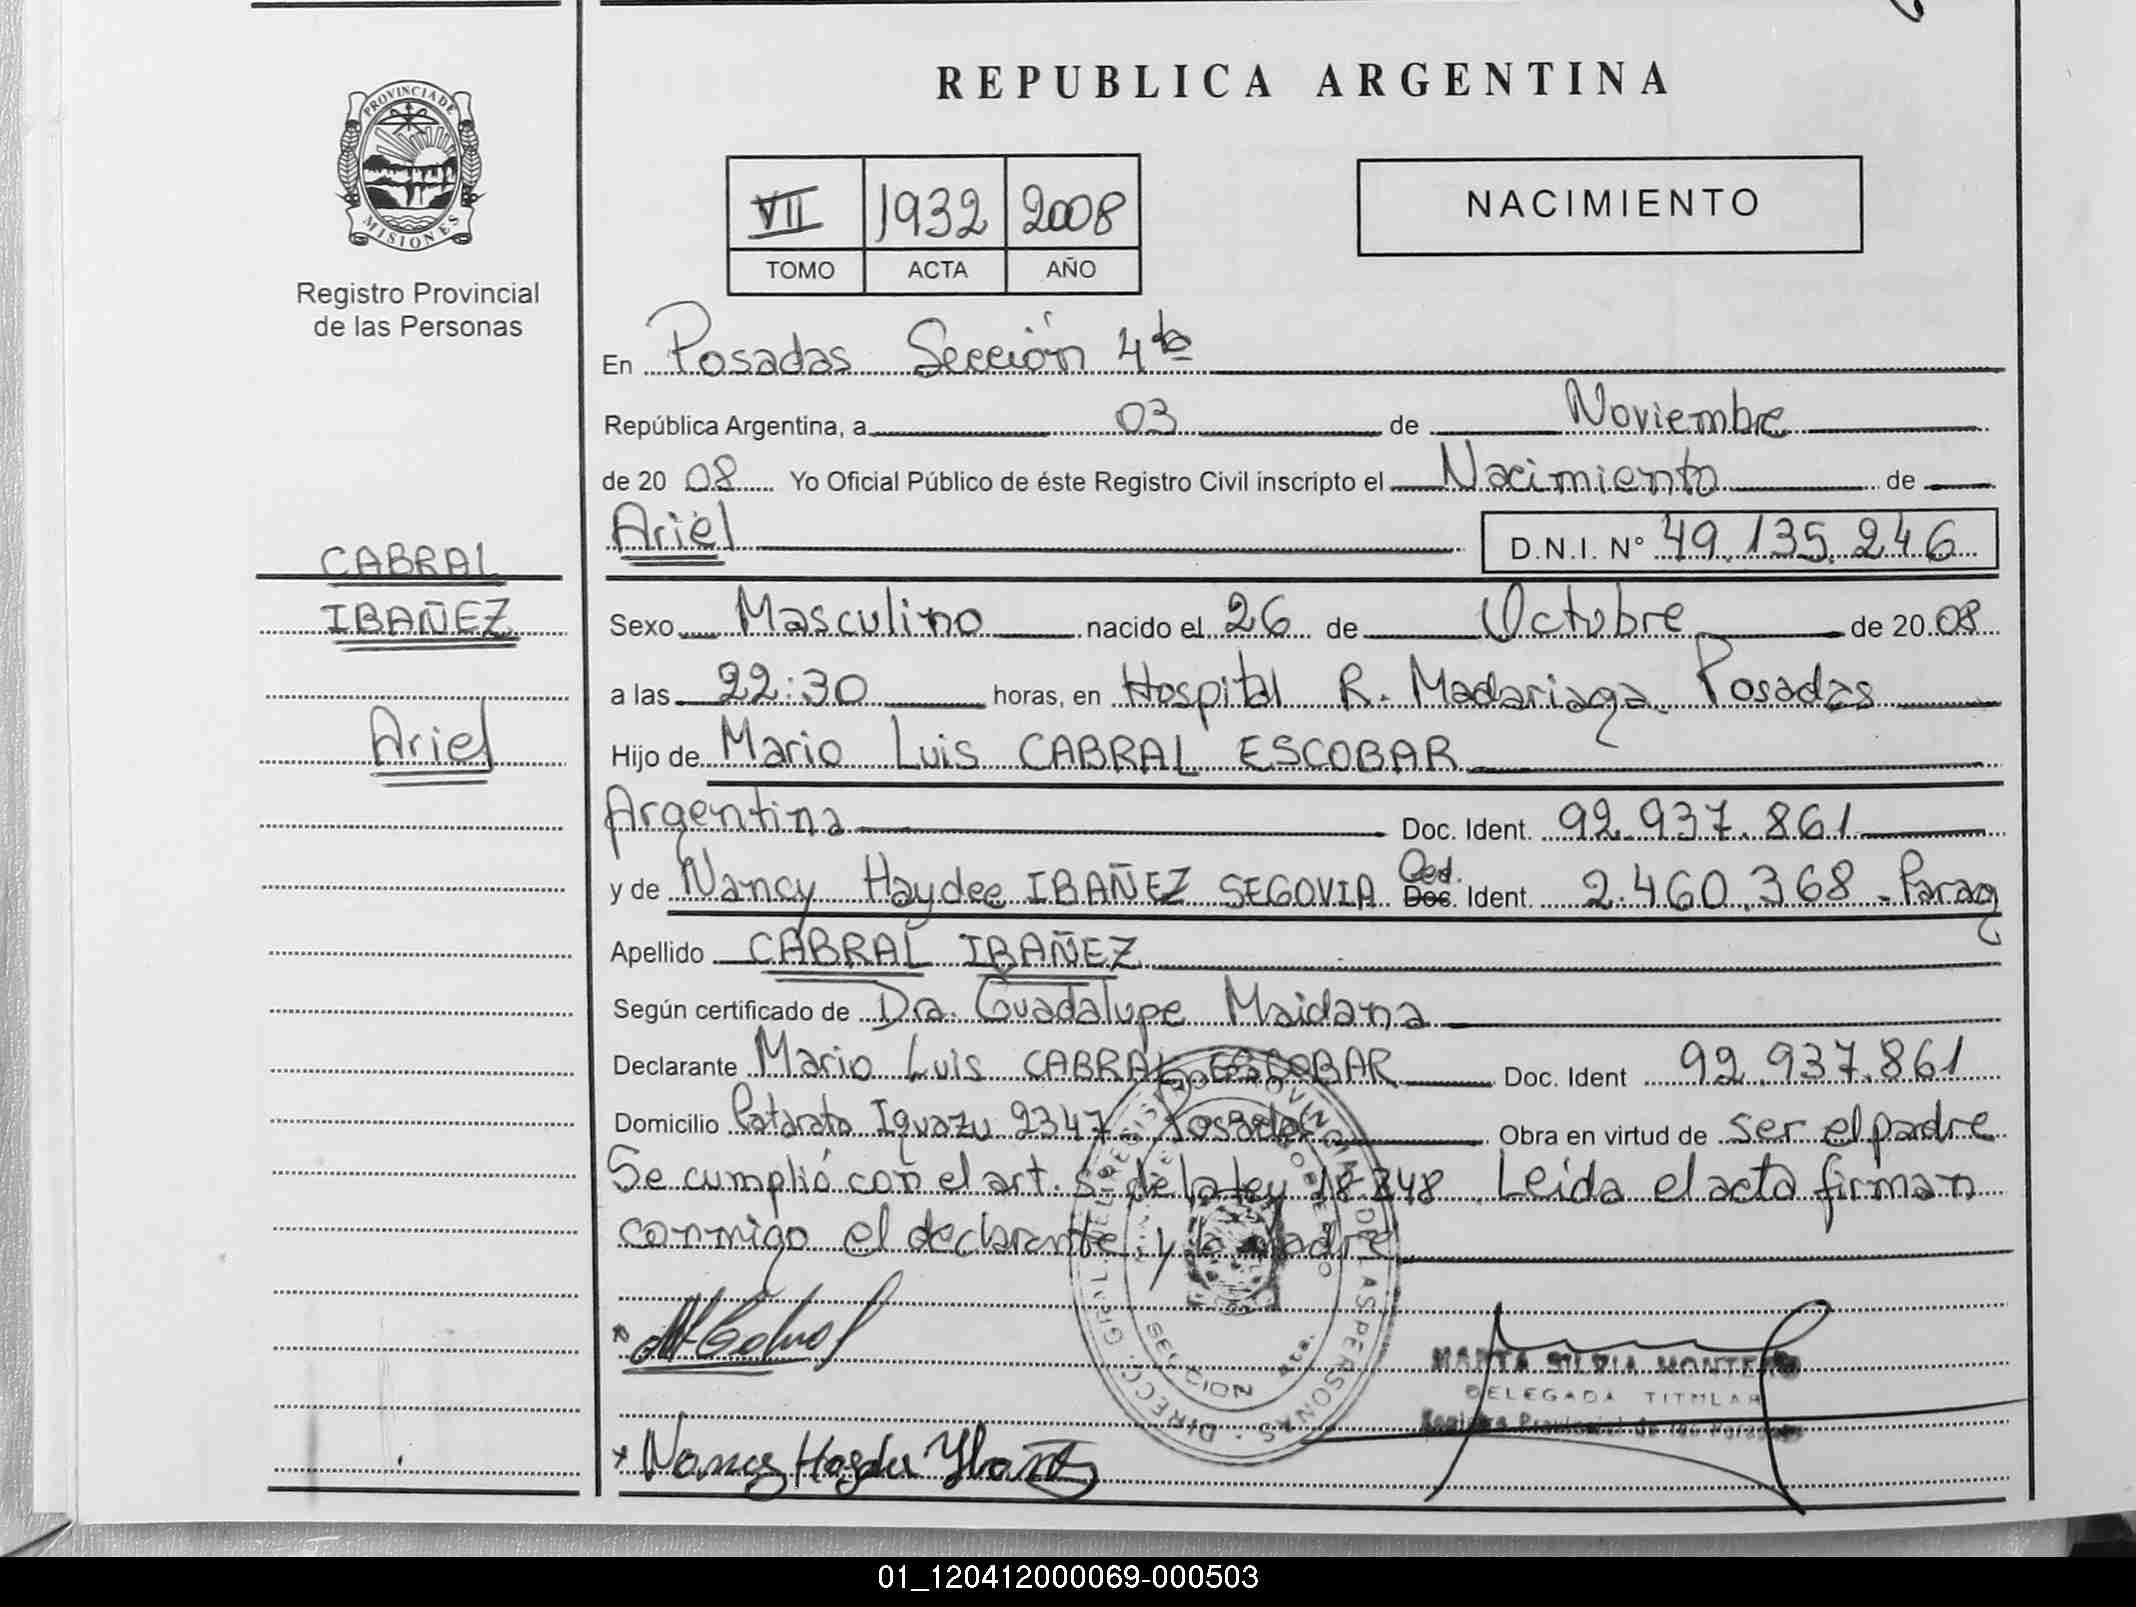 PROVINCIA DE
MISIONES
Registro Provincial
de las Personas
CABRAL
IBAÑEZ
Ariel
REPUBLICA ARGENTINA
VII 1932 2008
TOMO ACTA AÑO
NACIMIENTO
En Posadas Sección 4ta
República Argentina, a 03 de Noviembre
de 20 08 Yo Oficial Público de éste Registro Civil inscripto el Nacimiento de
Ariel D.N.I. N° 49.135.246
Sexo Masculino nacido el 26 de Octubre de 20 08
a las 22:30 horas, en Hospital R. Madariaga Posadas
Hijo de Mario Luis CABRAL ESCOBAR
Argentina Doc. Ident. 92.937.861
y de Nancy Haydee IBAÑEZ SEGOVIA Ced. Doc. Ident. 2.460.368 - Parag
Apellido CABRAL IBAÑEZ
Según certificado de Dra. Guadalupe Maidana
Declarante Mario Luis CABRAL ESCOBAR Doc. Ident 92.937.861
Domicilio Catarata Iguazu 2347 Posadas Obra en virtud de ser el padre
Se cumplió con el art. 5 de la ley 18248. Leida el acta firman
conmigo el declarante y la Madre
MARTA SILVIA MONTERO
DELEGADA TITULAR
Registro Provincial de las Personas
Nancy Haydee Ybañez
01_120412000069-000503